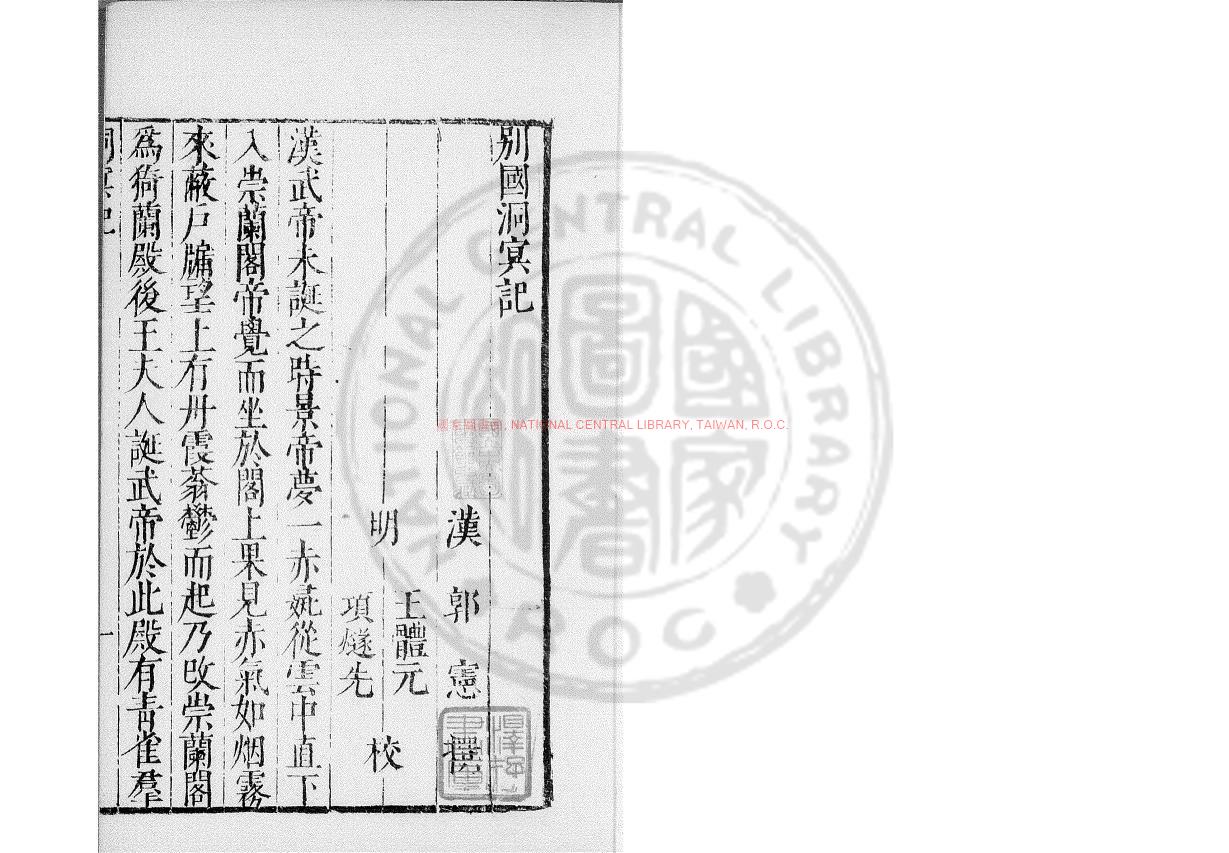 別國洞冥記
漢 郭 憲 撰
明 王體元 校
項燧先
漢武帝未誕之時景帝夢一赤彘從雲中直下
入崇蘭閣帝覺而坐於閣上果見赤氣如烟霧
來蔽戶牖望上有丹霞蓊鬱而起乃改崇蘭閣
爲猗蘭殿後王夫人誕武帝於此殿有青雀羣
洞冥記 一
NATIONAL CENTRAL LIBRARY
R.O.C
國家圖書館
國家圖書館, NATIONAL CENTRAL LIBRARY, TAIWAN, R.O.C.